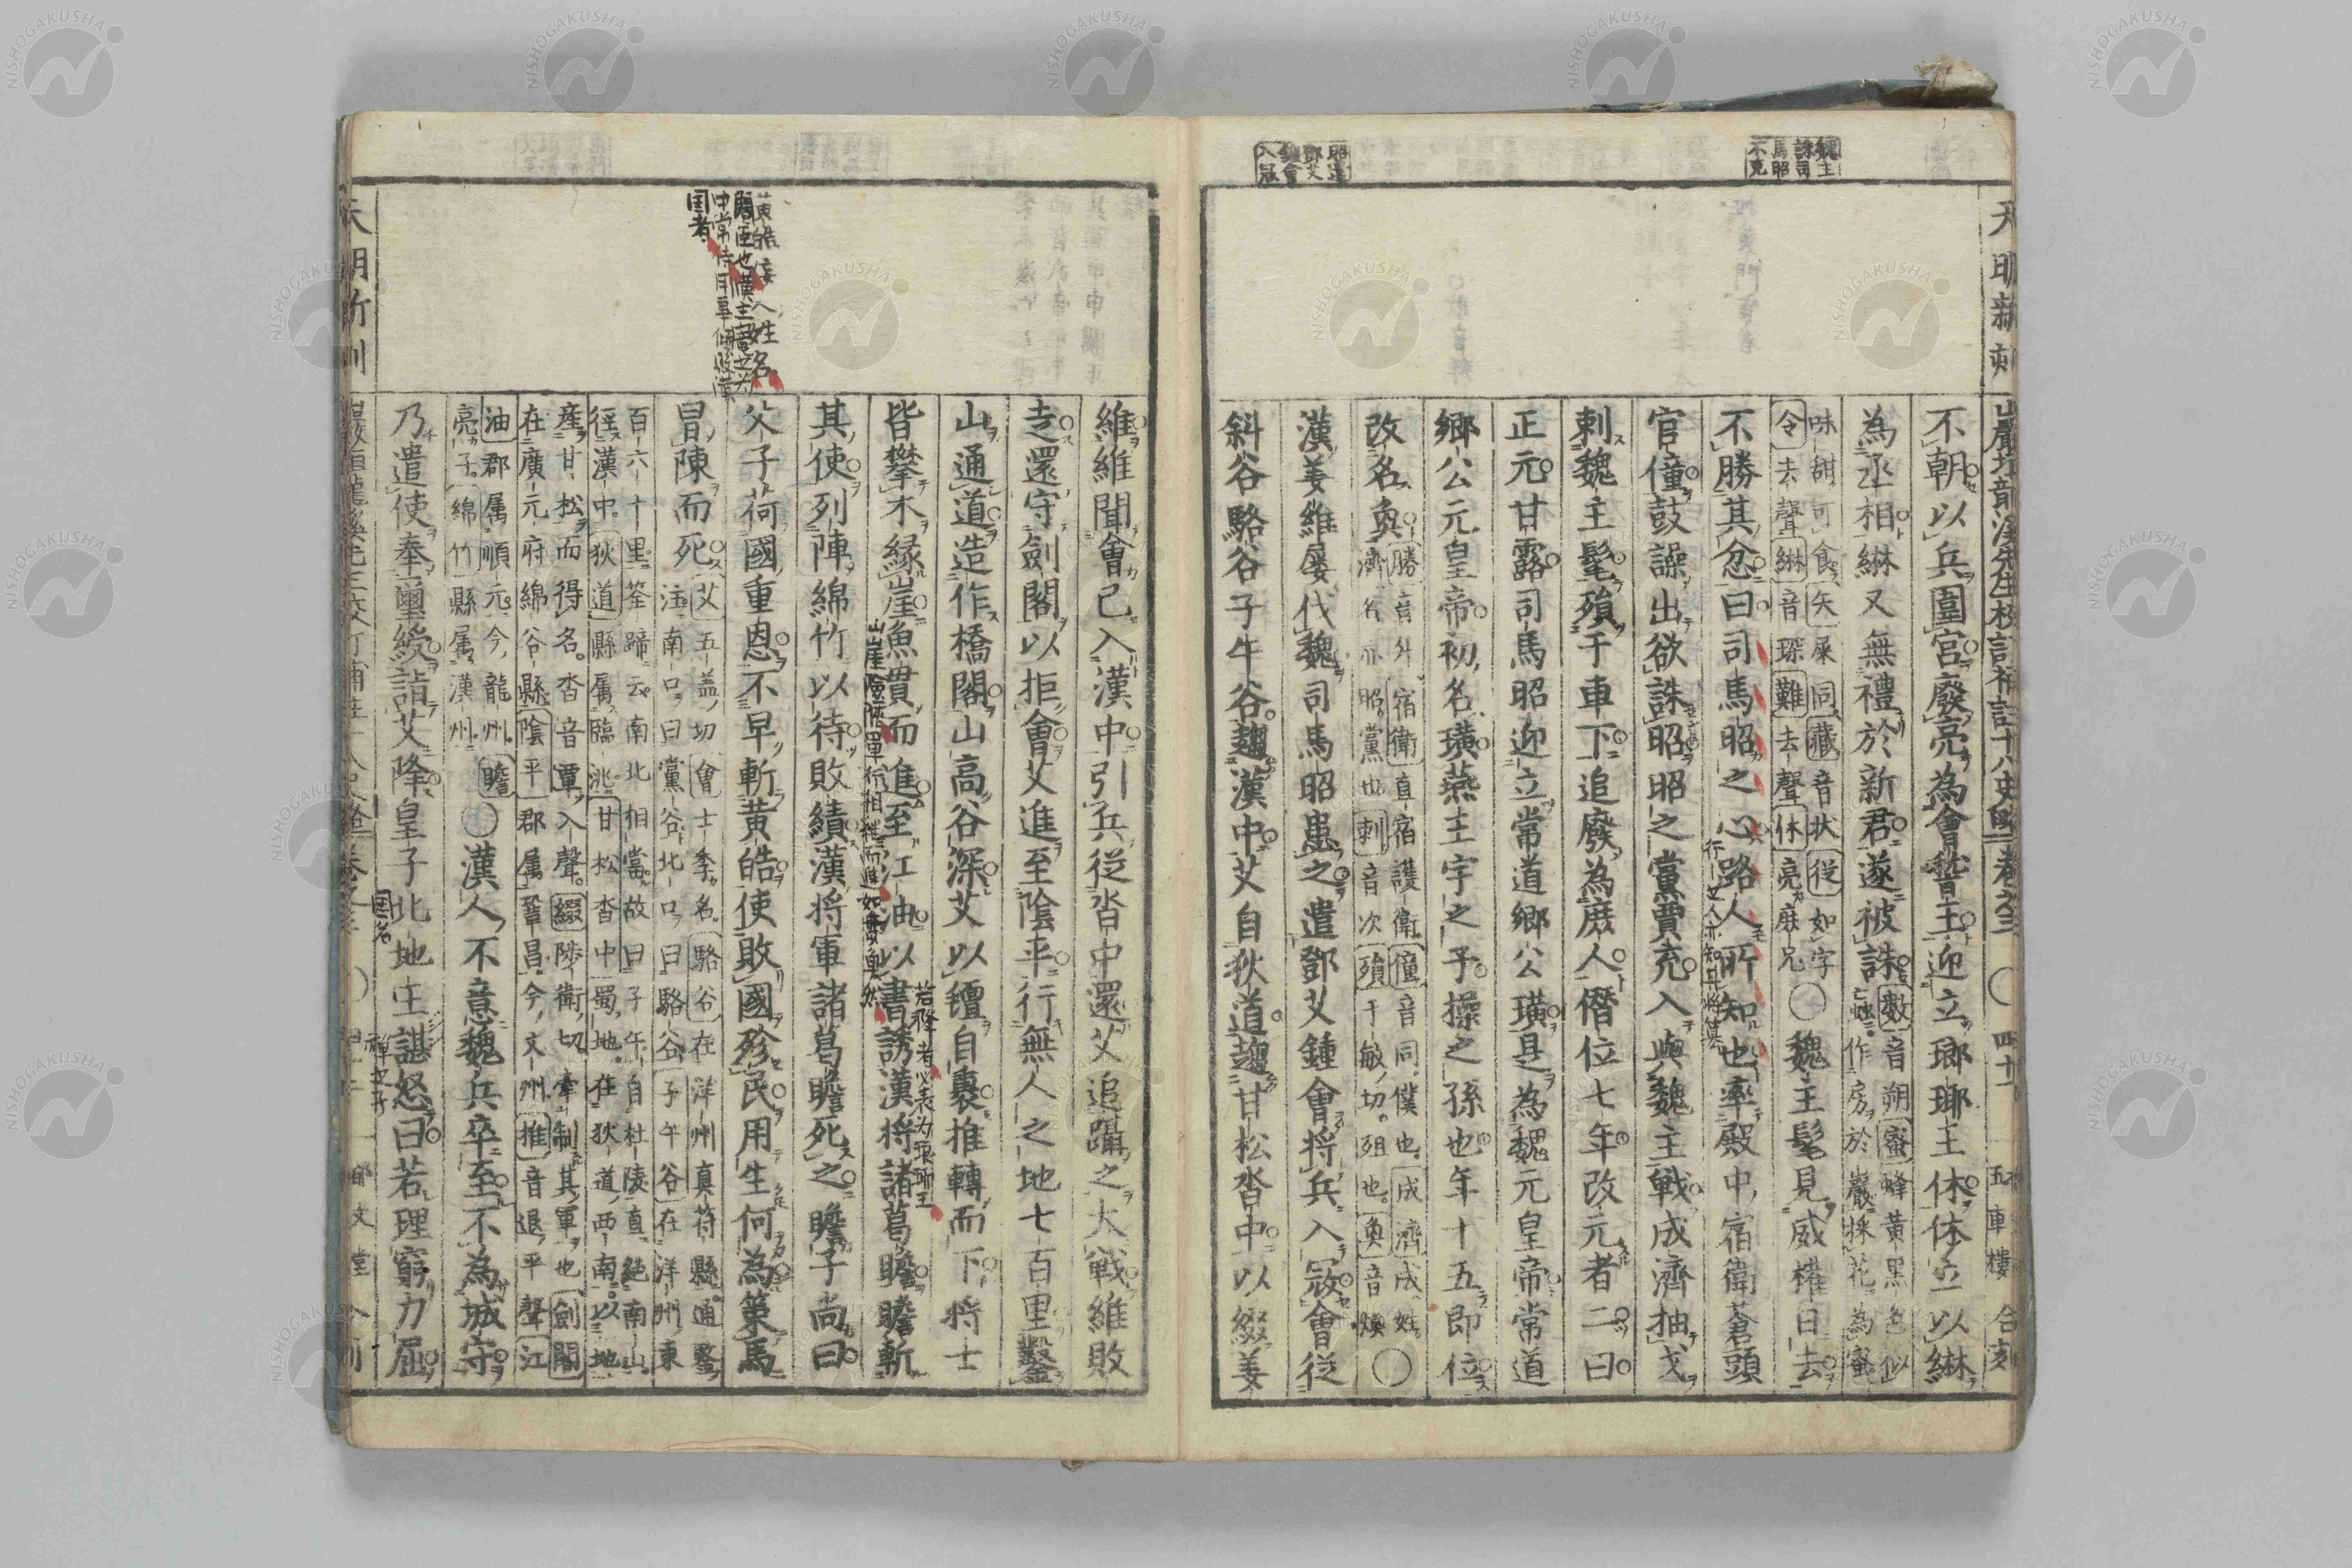 天明新刻
巖垣龍溪先生校訂補註十八史略 卷之三 〇 四十 五車樓 合刻
魏主
誅司
馬昭
不克
昭遣
鄧艾
鐘會
入寇
不朝以兵圍宮廢亮為會稽王迎立瑯琊王休休立以綝
為丞相綝又無禮於新君遂被誅 數音朔蜜蜂黃黑色似
亡蚰作房於巖採花為蜜
味甜可食矢屎同藏音状從如字
令去聲綝音琛難去聲休亮庶兄〇魏主髦見威權日去
不勝其忿曰司馬昭之心路人所知也率殿中宿衛蒼頭
行之人亦知其將篡
官僮鼓譟出欲誅昭昭之黨賈充入與魏主戰成濟抽戈
刺魏主髦殞于車下追廢為庶人僭位七年改元者二曰
正元甘露司馬昭迎立常道鄉公璜是為魏元皇帝常道
鄉公元皇帝初名璜燕王宇之子操之孫也年十五即位
改名奐 勝音升宿衛直宿護衛僮音同僕也成濟成姓
濟名亦昭黨也刺音次殞于敏切歿也奐音煥〇
漢姜維屢伐魏司馬昭患之遣鄧艾鍾會將兵入寇會從
斜谷駱谷子午谷趨漢中艾自狄道趨甘松沓中以綴姜
維維聞會已入漢中引兵從沓中還艾追躡之大戰維敗
走還守劍閣以拒會艾進至陰平行無人之地七百里鑿
山通道造作橋閣山高谷深艾以氊自裹推轉而下將士
皆攀木緣崖魚貫而進至江油以書誘漢將諸葛瞻瞻斬
若降者必表为琅琊王
山崖險陜單行相継而進如貫魚然
其使列陣綿竹以待敗績漢將軍諸葛瞻死之瞻子尚曰
父子荷國重恩不早斬黃皓使敗國殄民用生何為策馬
黃皓宦人姓名
閹臣也漢主寵之为
中常侍用事傾敗漢
国者
冒陳而死 艾五盖切會士季名駱谷在洋州真符縣通鑒
注南口曰黨谷北口曰駱谷子午谷在洋州東
百六十里筌蹄云南北相當故曰子午自杜陵直絶南山
徑漢中狄道縣属臨洮甘松沓中蜀地在狄道西南以地
產甘松而得名沓音覃入聲綴陟衛切牽制其軍也劍閣
在廣元府綿谷縣陰平郡属鞏昌今文州推音退平聲江
油郡属順元今龍州瞻
亮子綿竹縣属漢州〇漢人不意魏兵卒至不為城守
乃遣使奉璽綬詣艾降皇子北地王諶怒曰若理窮力屈
国名
禪之子
天明新刻